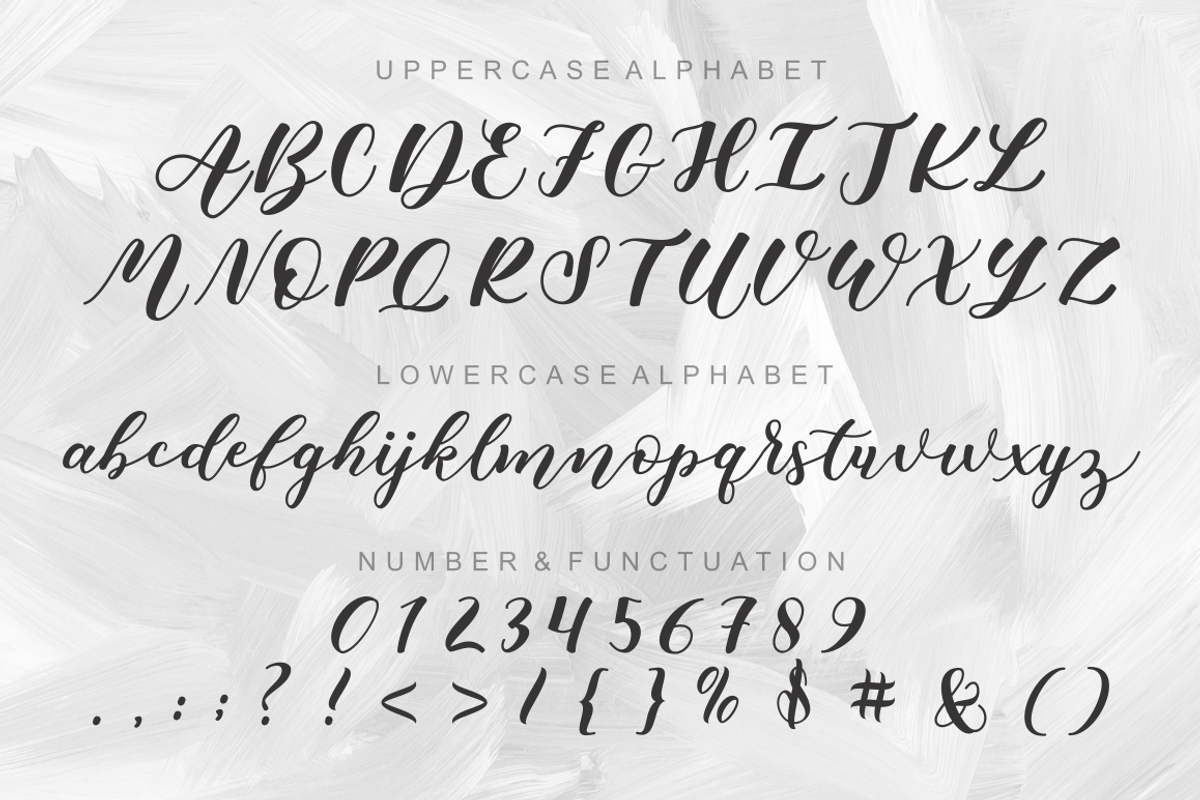 UPPERCASE ALPHABET
ABCDEFGHIJKL
MNOPQRSTUVWXYZ
LOWERCASE ALPHABET
abcdefghijklmnopqrstuvwxyz
NUMBER & FUNCTUATION
0123456789
. , : ; ? ! < > / { } % $ # & ( )